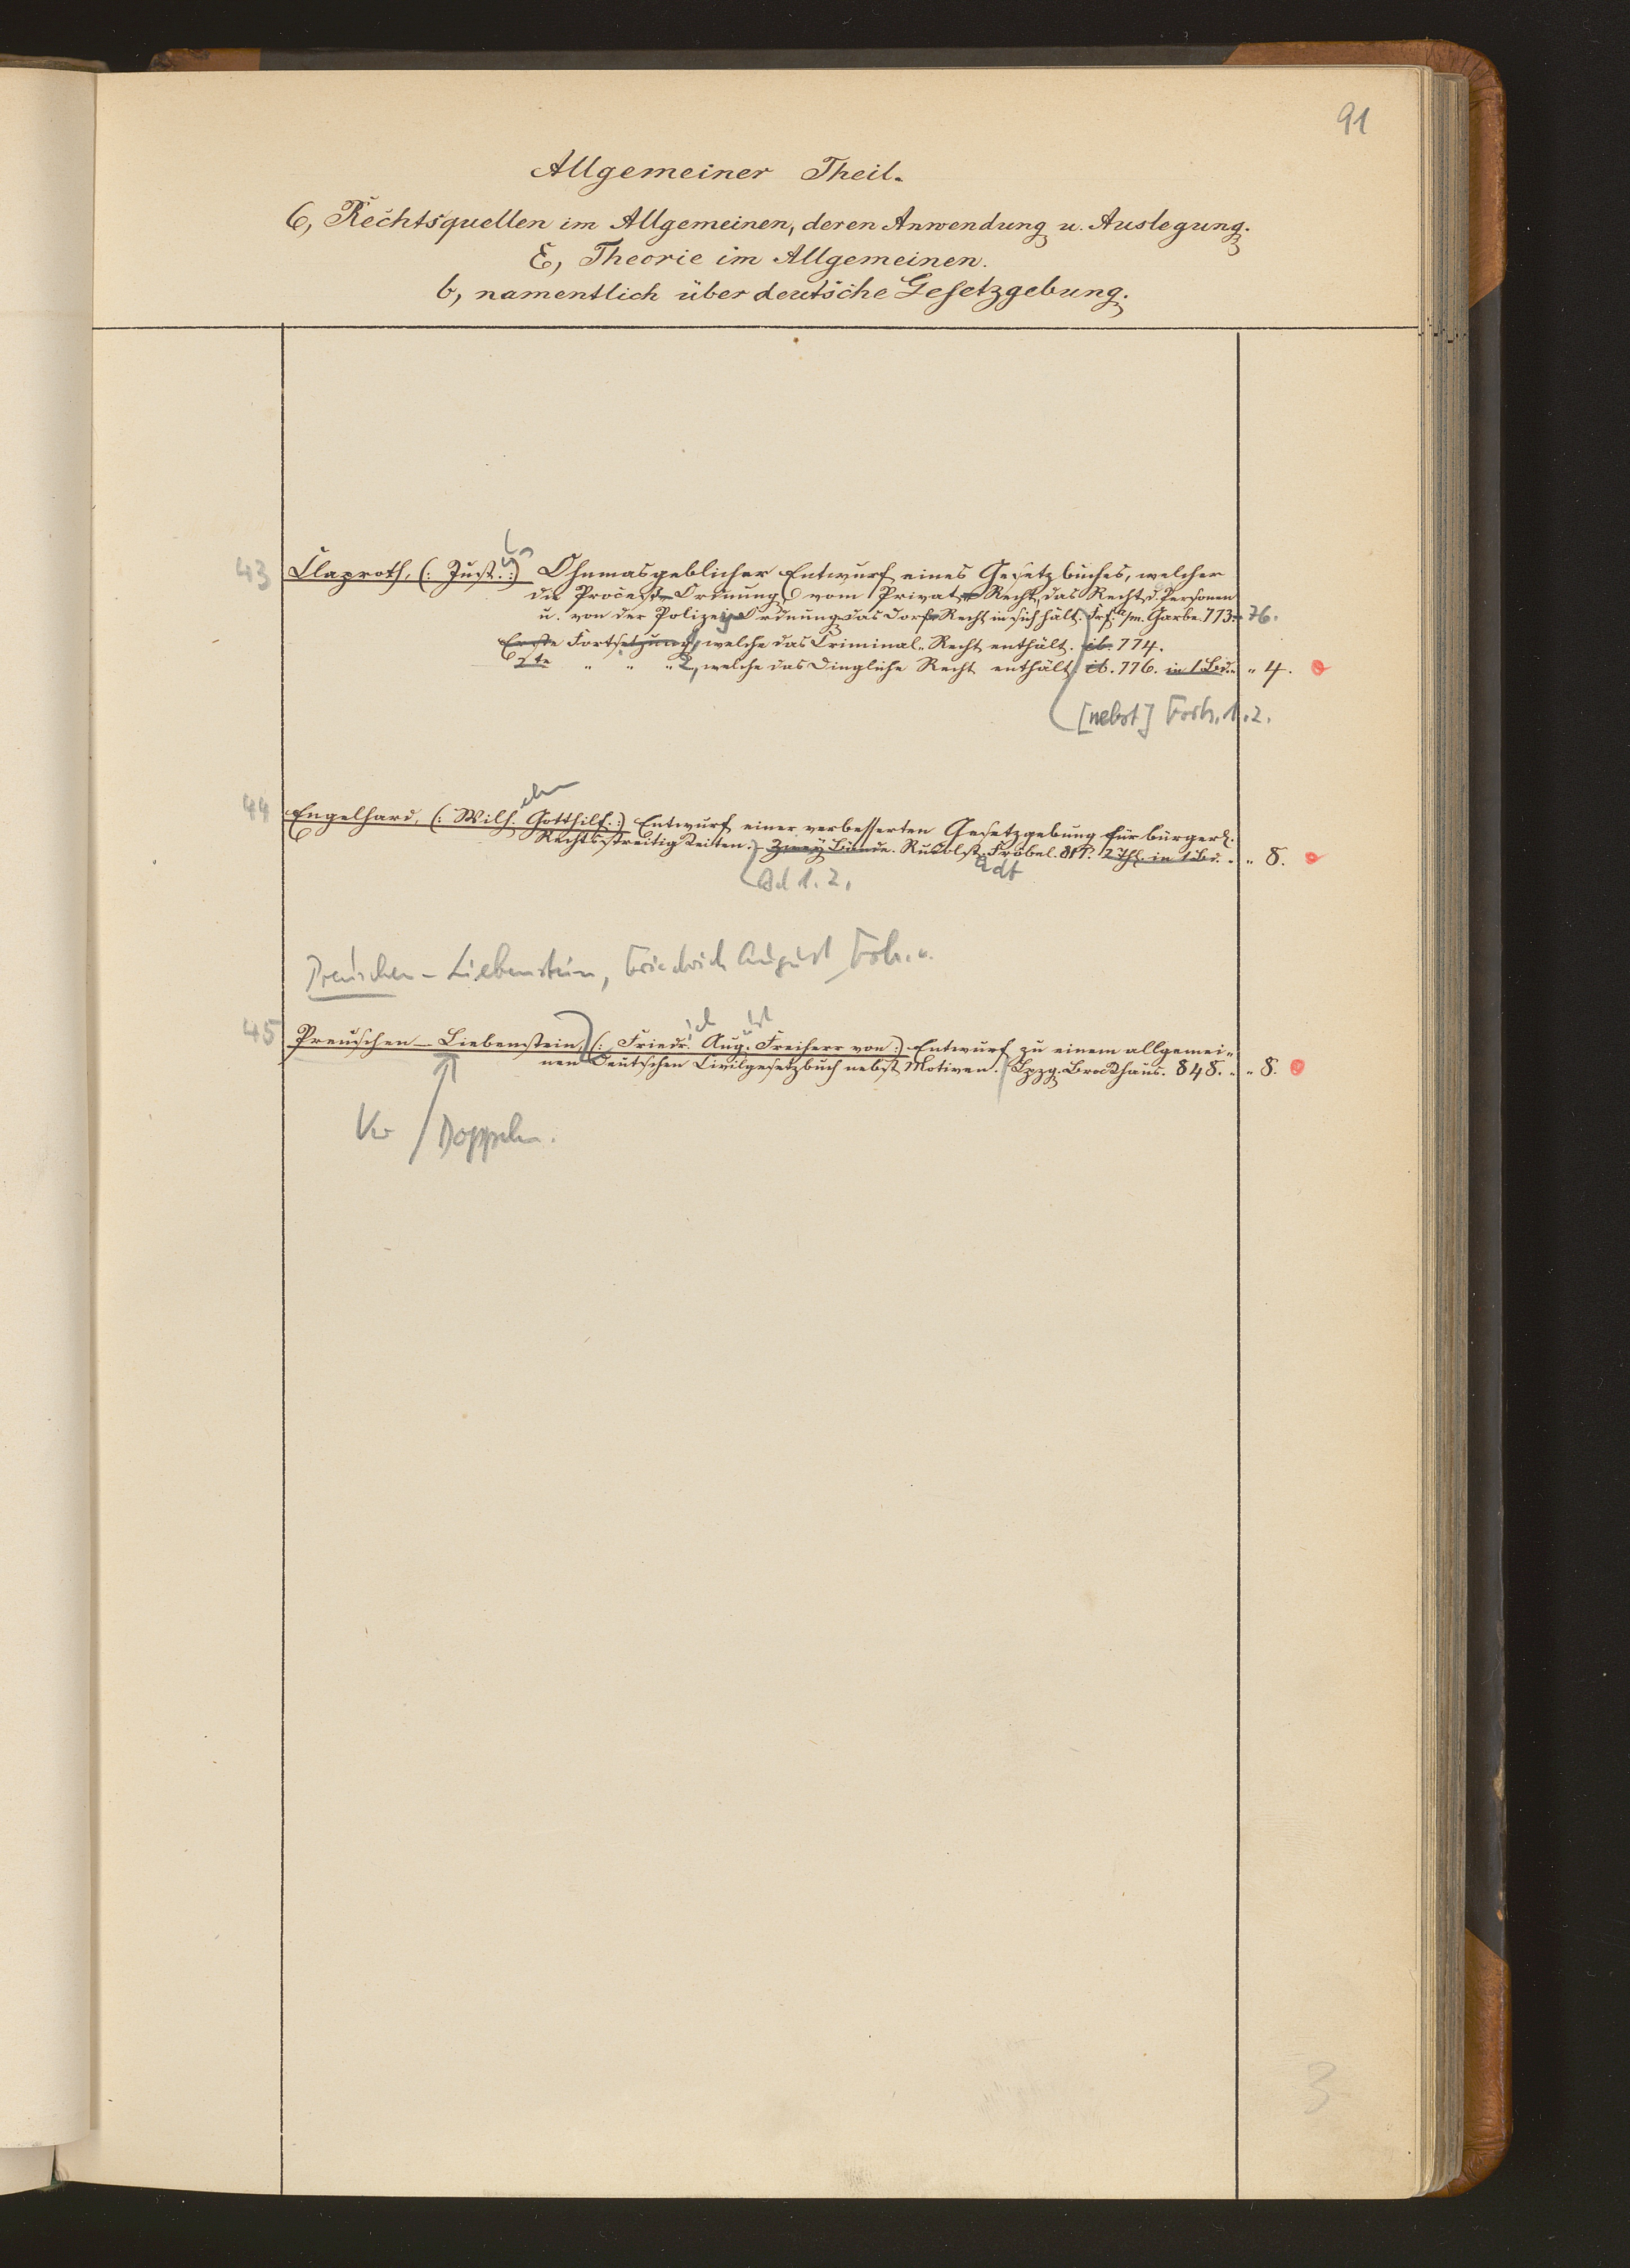 91
Allgemeiner Theil.
C, Rechtsquellen im Allgemeinen, deren Anwendung u. Auslegung.
E, Theorie im Allgemeinen.
b, namentlich über deutsche Gesetzgebung.
43 Claproth, (: Just. :) Ohnmasgeblicher Entwurf eines Gesetzbuches, welcher
die Proceß-Ordnung vom Privat-Recht, das Recht d. Personen
u. von der Polizey-Ordnung das Dorf-Recht in sich hält. Frf. a/m. Garbe. 773-76.
Erste Fortsetzung, welche das Criminal-Recht enthält. ib. 774.
2te " " " 2, welche das Dingliche Recht enthält. ib. 776. in 1 Bd. " 4.
[nebst] Forts. 1.2.
44 Engelhard, (: Wilh. Gotthilf. :) Entwurf einer verbesserten Gesetzgebung für bürgerl.
elm
Rechtsstreitigkeiten. Zwey Bände. Rudolst. Fröbel. 817. 2 Thl. in 1 Bd. " 8.
Bd 1. 2. adt
Preuschen-Liebenstein, Friedrich August Frh. v.
ich ust
45 Preuschen-Liebenstein, (: Friedr. Aug. Freiherr von :) Entwurf zu einem allgemei-
nen Deutschen Civilgesetzbuch nebst Motiven. Lpzg. Brockhaus. 848. " 8.
Doppeln.
3